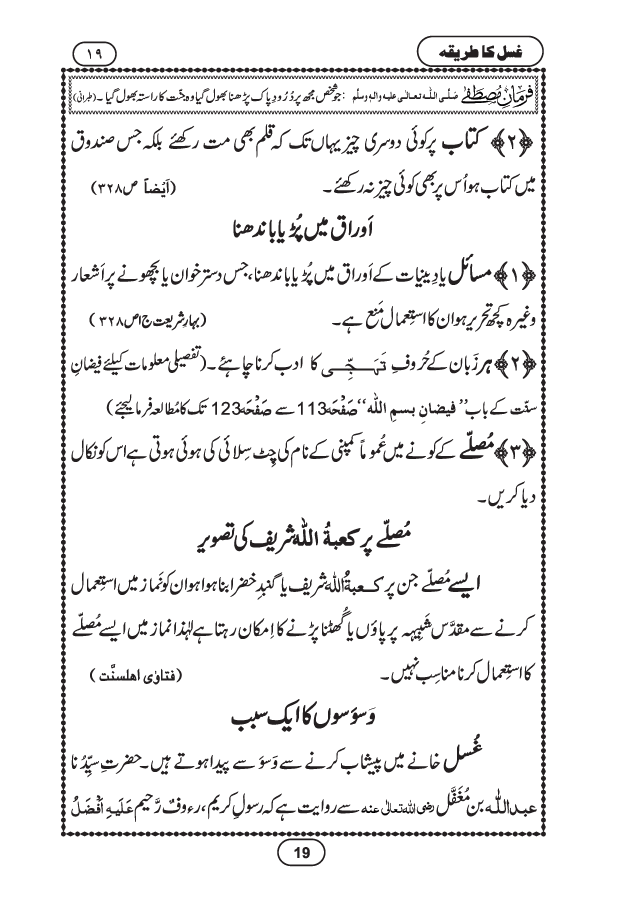 غسل کا طریقہ
۱۹
فرمانِ مُصطَفٰے صلَّی اللہ تعالٰی علیہ والہٖ وسلَّم : جو شخص مجھ پر دُرُودِ پاک پڑھنا بھول گیا وہ جنّت کا راستہ بھول گیا۔ (طبرانی)
﴿۲﴾ کتاب پر کوئی دوسری چیز یہاں تک کہ قلم بھی مت رکھئے بلکہ جس صندوق
میں کتاب ہو اُس پر بھی کوئی چیز نہ رکھئے۔ (اَیضاً ص۳۲۸)
اَوراق میں پُڑیا باندھنا
﴿۱﴾ مسائل یا دِینیات کے اَوراق میں پُڑیا باندھنا، جس دسترخوان یا بچھونے پر اَشعار
وغیرہ کچھ تحریر ہو ان کا استِعمال مَنع ہے۔ (بہارِ شریعت ج۱ ص۳۲۸)
﴿۲﴾ ہر زَبان کے حُروفِ تَہَجِّی کا ادب کرنا چاہئے۔ (تفصیلی معلومات کیلئے فیضانِ
سنّت کے باب ’’فیضانِ بسمِ اللہ‘‘ صَفْحَہ 113 سے صَفْحَہ 123 تک کا مُطالعہ فرما لیجئے)
﴿۳﴾ مُصلّے کے کونے میں عُموماً کمپنی کے نام کی چِٹ سِلائی کی ہوئی ہوتی ہے اس کو نکال
دیا کریں۔
مُصلّے پر کعبۃُ اللّٰہ شریف کی تصویر
ایسے مُصلّے جن پر کعبۃُ اللّٰہ شریف یا گنبدِ خضرا بنا ہوا ہو ان کو نَماز میں استِعمال
کرنے سے مقدَّس شَبِیہہ پر پاؤں یا گُھٹنا پڑنے کا اِمکان رہتا ہے لہٰذا نماز میں ایسے مُصلّے
کا استِعمال کرنا مناسِب نہیں۔ (فتاوٰی اھلسنَّت)
وَسوَسوں کا ایک سبب
غُسل خانے میں پیشاب کرنے سے وَسوَسے پیدا ہوتے ہیں۔ حضرتِ سیِّدُنا
عبداللّٰہ بن مُغَفَّل رضی اللہ تعالٰی عنہ سے روایت ہے کہ رسولِ کریم، رءوفٌ رَّحیم عَلَیْہِ اَفْضَلُ
19